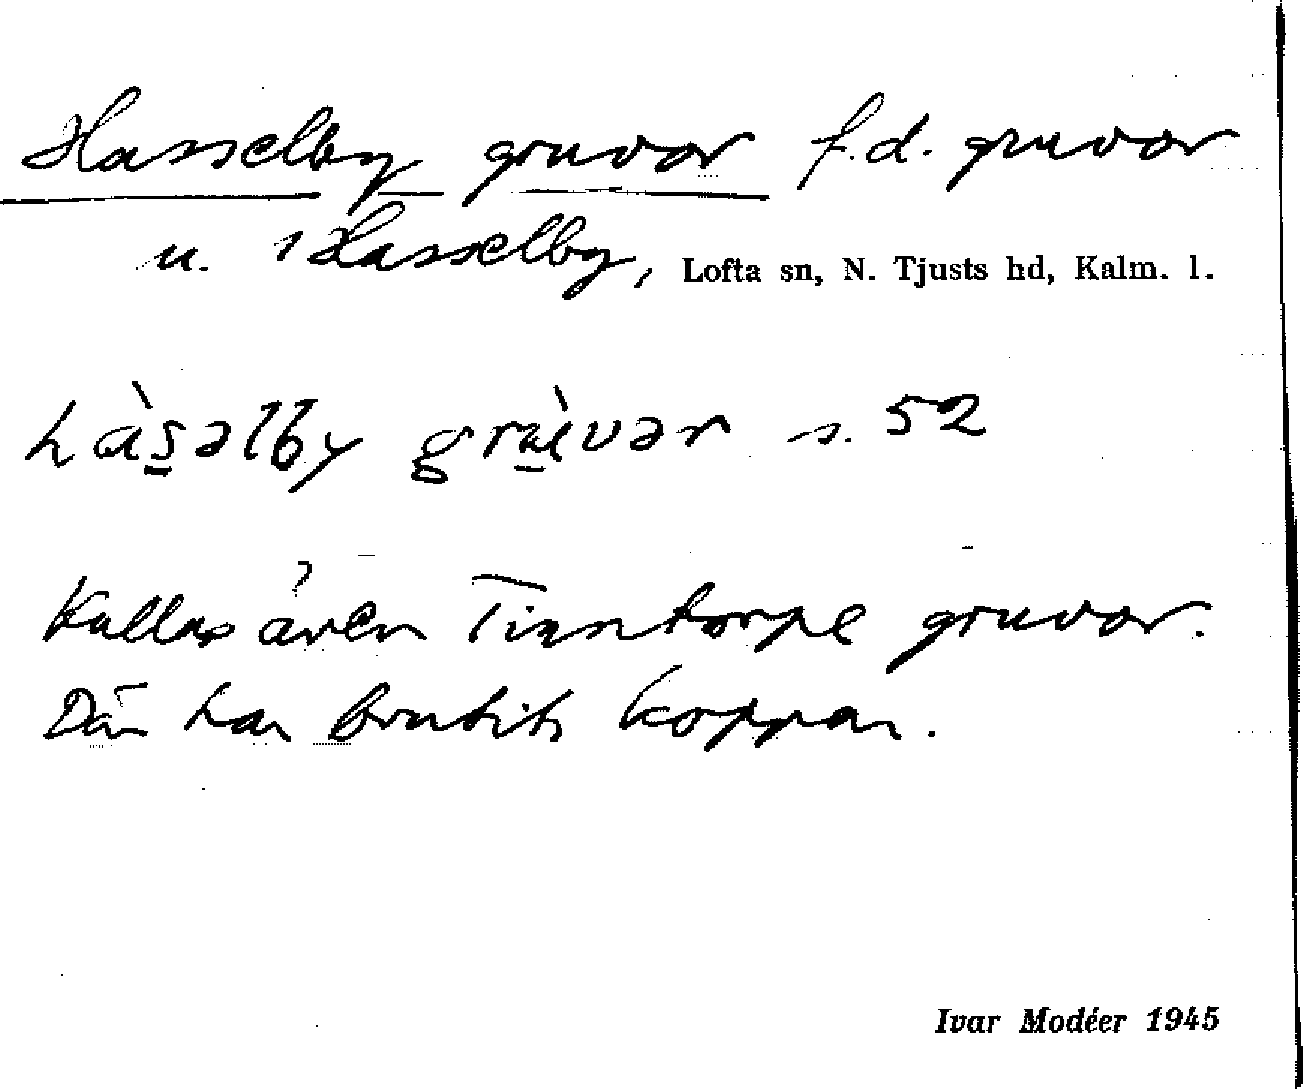 Hasselby gruvor f.d. gruvor
u. 1 Hasselby, Lofta sn, N. Tjusts hd, Kalm. l.
hàs̲əlby gruvər s. 52
Kallas även gruvor.
Där har brutits koppar.
Ivar Modéer 1945